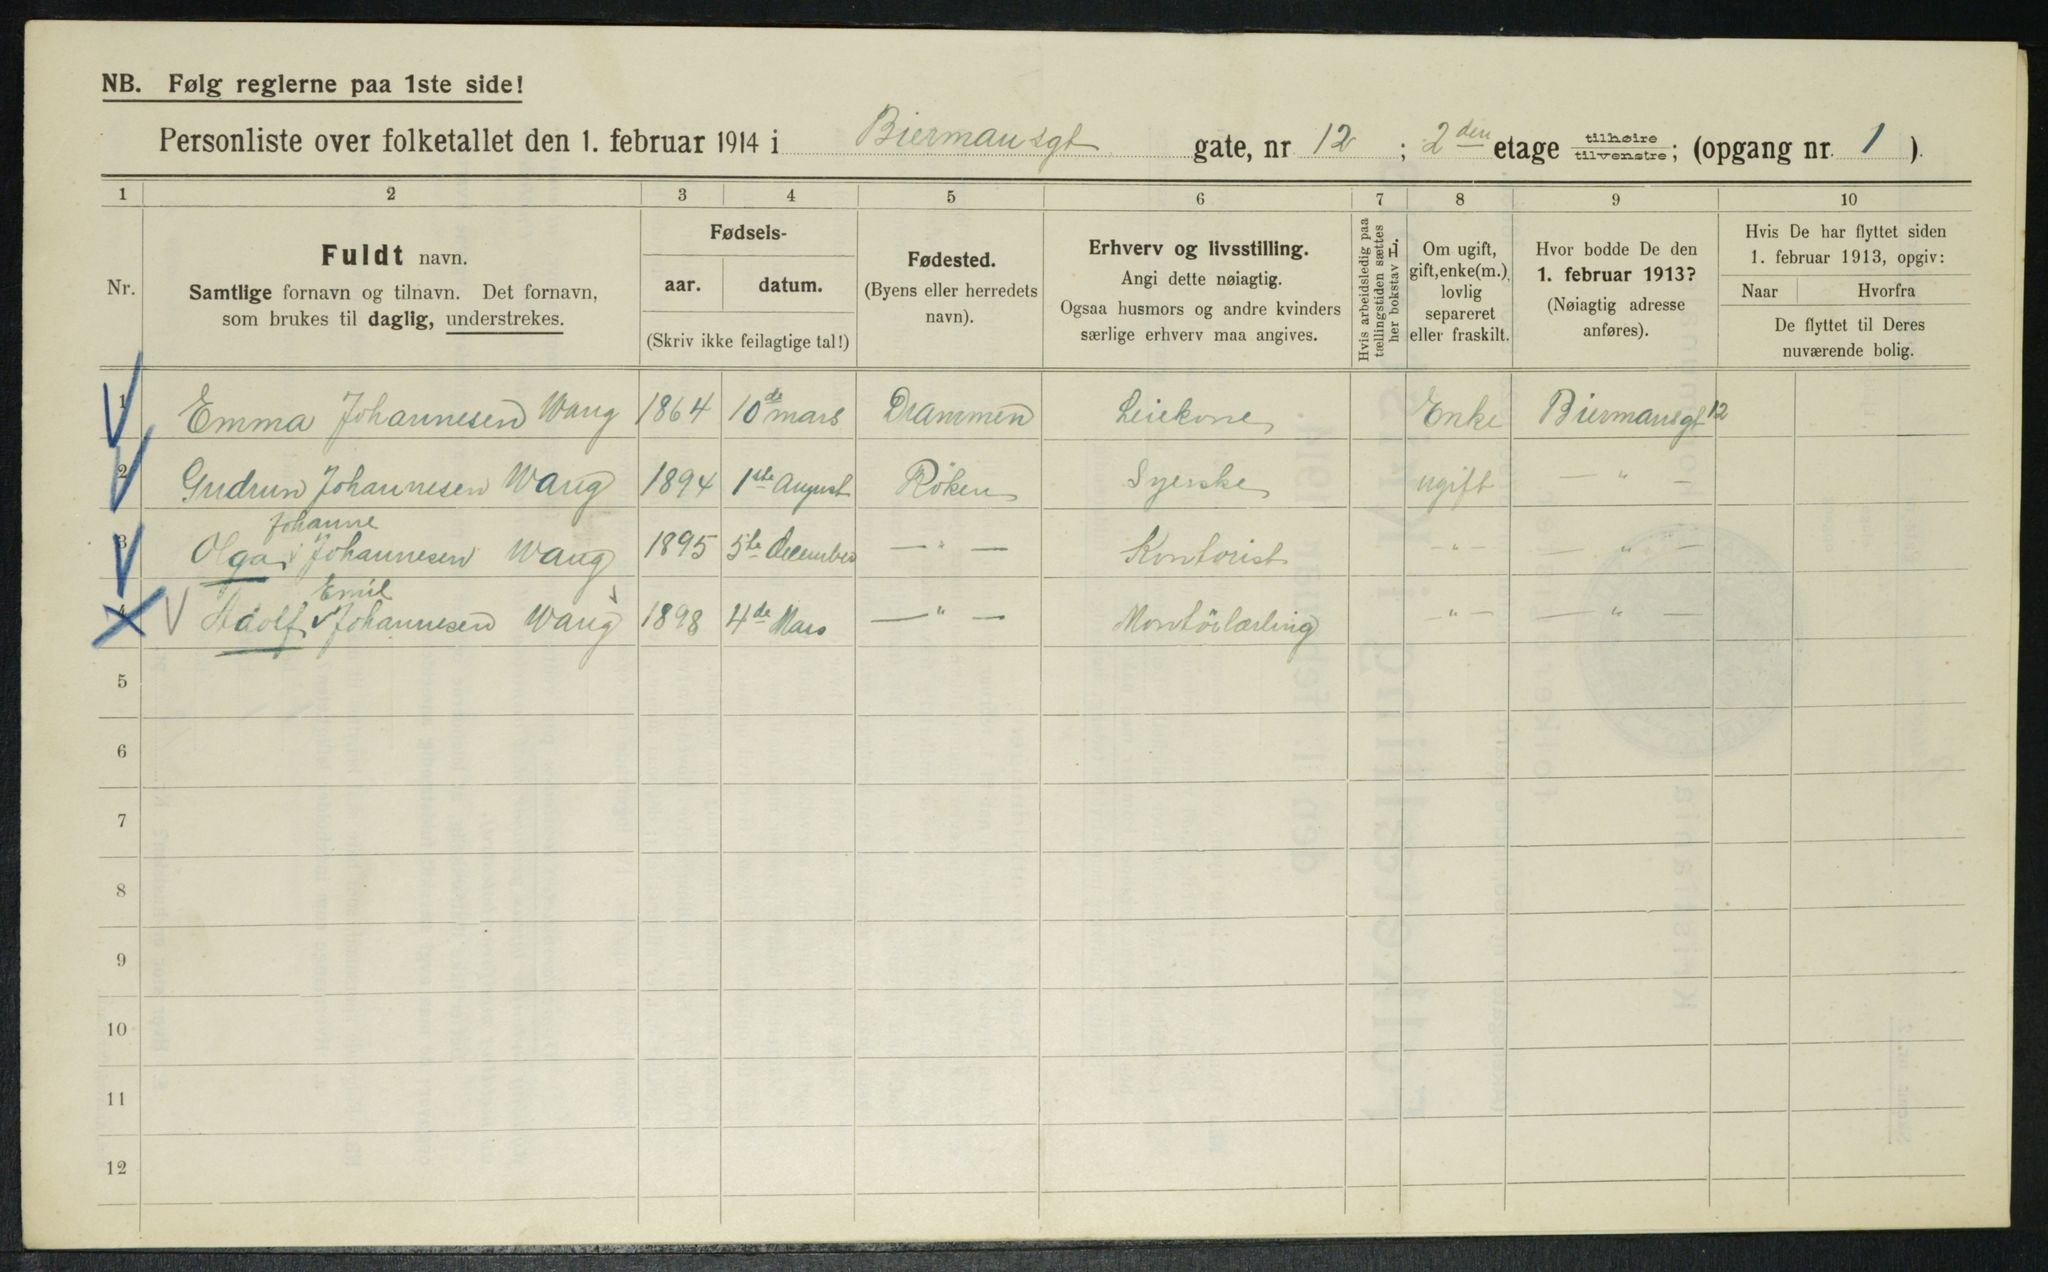 NB. Følg reglerne paa 1ste side!
Personliste over folketallet den 1. februar 1914 i Biermansgt gate, nr 12 ; 2den etage tilhøire tilvenstre; (opgang nr. 1 ).
1 2 3 4 5 6 7 8 9 10
Nr.
Fuldt navn.
Samtlige fornavn og tilnavn. Det fornavn,
som brukes til daglig, understrekes.
Fødsels-
aar. datum.
(Skriv ikke feilagtige tal!)
Fødested.
(Byens eller herredets
navn).
Erhverv og livsstilling.
Angi dette nøiagtig.
Ogsaa husmors og andre kvinders
særlige erhverv maa angives.
Hvis arbeidsledig paa
tællingstiden sættes
her bokstav L.
Om ugift,
gift, enke(m.),
lovlig
separeret
eller fraskilt.
Hvor bodde De den
1. februar 1913?
(Nøiagtig adresse
anføres).
Hvis De har flyttet siden
1. februar 1913, opgiv:
Naar Hvorfra
De flyttet til Deres
nuværende bolig.
1 Emma Johannesen Wang 1864 10de mars Drammen Leiekone Enke Biermansgt 12
2 Gudrun Johannesen Wang 1894 1ste August Röken Syerske ugift — " —
Johanne
3 Olga Johannesen Wang 1895 5te december — " — Kontorist — " — — " —
Emil
4 Adolf Johannesen Wang 1898 4de Mars — " — Montörlærling — " — — " —
5
6
7
8
9
10
11
12